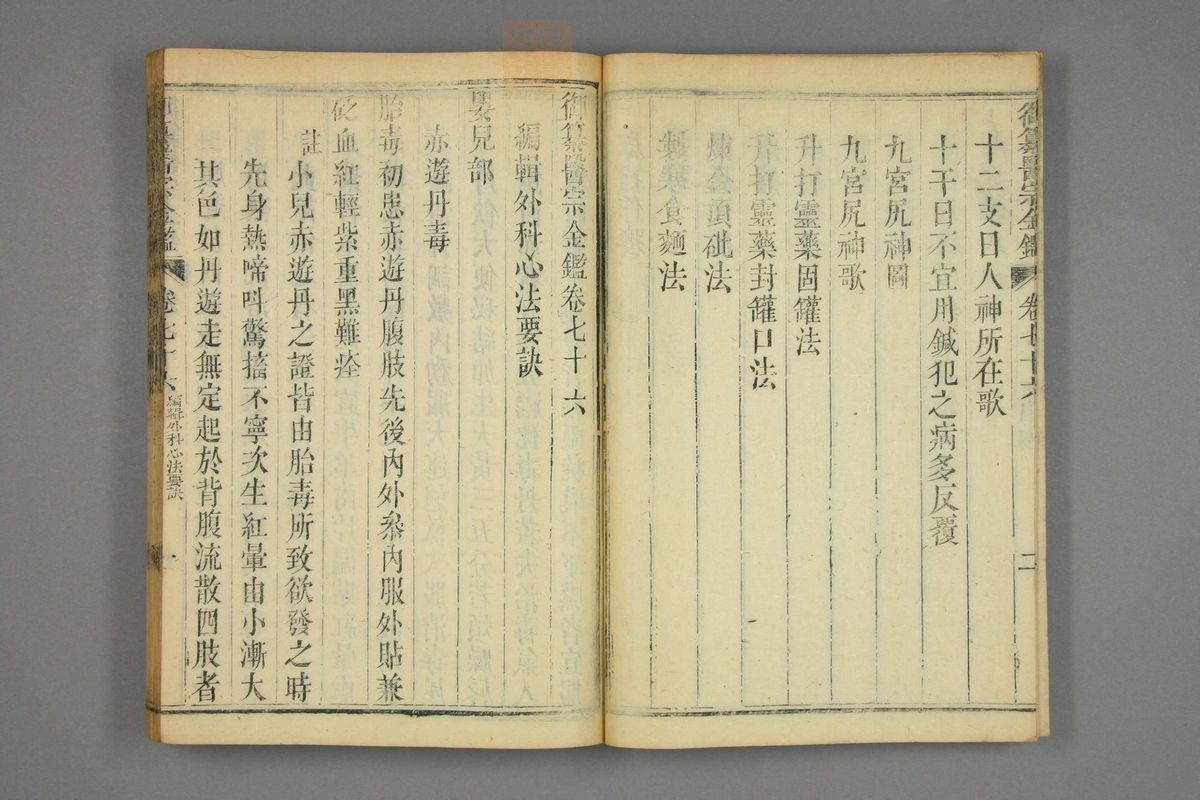 御纂醫宗金鑑 卷七十六 二
十二支日人神所在歌
十干日不宜用鍼犯之病多反覆
九宮尻神圖
九宮尻神歌
升打靈藥固罐法
升打靈藥封罐口法
煉金頂砒法
製寒食麵法
御纂醫宗金鑑卷七十六
編輯外科心法要訣
嬰兒部
赤遊丹毒
胎毒初患赤遊丹腹肢先後內外參內服外貼兼
砭血紅輕紫重黑難痊
註小兒赤遊丹之證皆由胎毒所致欲發之時
先身熱啼叫驚搐不寧次生紅暈由小漸大
其色如丹遊走無定起於背腹流散四肢者
宗金鑑 卷七十六 編輯外科心法要訣 一